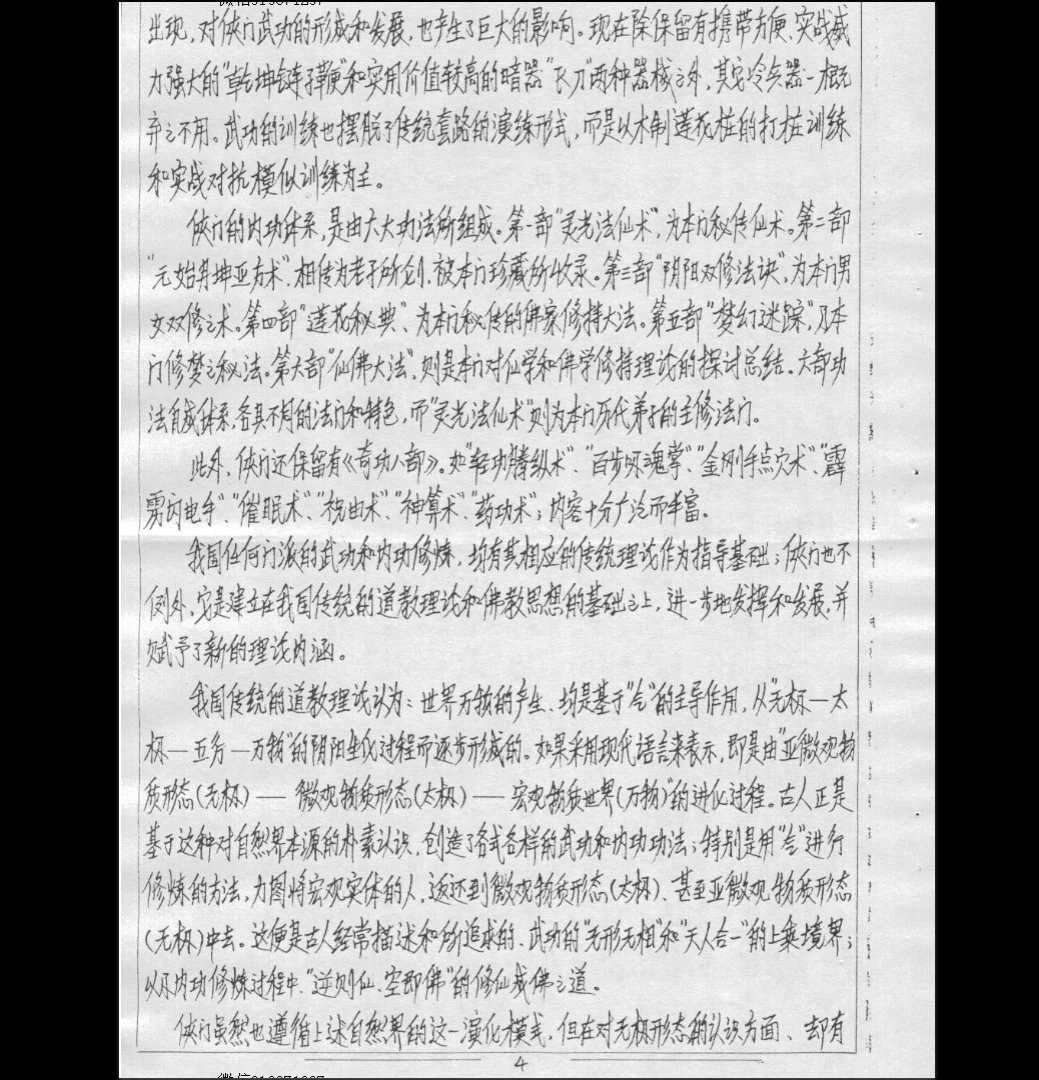 出现，对侠门武功的形成和发展，也产生了巨大的影响。现在除保留有携带方便、实战威
力强大的"乾坤链子鞭"和实用价值较高的暗器"飞刀"两种器械之外，其它冷兵器一概
弃之不用。武功的训练也摆脱了传统套路的演练形式，而是以木制莲花桩的打桩训练
和实战对抗模似训练为主。
侠门的内功体系，是由六大功法所组成。第一部"灵光法仙术"，为本门秘传仙术。第二部
"元始乾坤亚方术"，相传为老子所创，被本门珍藏所收录。第三部"阴阳双修法诀"，为本门男
女双修之术。第四部"莲花秘典"、为本门秘传的佛家修持大法。第五部"梦幻迷踪"，乃本
门修梦之秘法。第六部"仙佛大法"，则是本门对仙学和佛学修持理论的探讨总结。六部功
法自成体系，各具不同的法门和特色，而"灵光法仙术"则为本门历代弟子的主修法门。
此外，侠门还保留有《奇功八部》。如"轻功腾纵术"、"百步吸魂掌"、"金刚手点穴术"、"霹
雳闪电手"、"催眠术"、"祝由术"、"神算术"、"药功术"；内容十分广泛而丰富。
我国任何门派的武功和内功修炼，均有其相应的传统理论作为指导基础；侠门也不
例外，它是建立在我国传统的道教理论和佛教思想的基础之上，进一步地发挥和发展，并
赋予了新的理论内涵。
我国传统的道教理论认为：世界万物的产生、均是基于"炁"的主导作用，从"无极—太
极—五行—万物"的阴阳生化过程而逐步形成的。如果采用现代语言来表示，即是由"亚微观物
质形态(无极)——微观物质形态(太极)——宏观物质世界(万物)"的进化过程。古人正是
基于这种对自然界本源的朴素认识，创造了各式各样的武功和内功功法；特别是用"炁"进行
修炼的方法，力图将宏观实体的人，返还到微观物质形态(太极)、甚至亚微观物质形态
(无极)中去。这便是古人经常描述和所追求的、武功的"无形无相"和"天人合一"的上乘境界；
以及内功修炼过程中、"逆则仙、空即佛"的修仙成佛之道。
侠门虽然也遵循上述自然界的这一演化模式，但在对无极形态的认识方面、却有
4